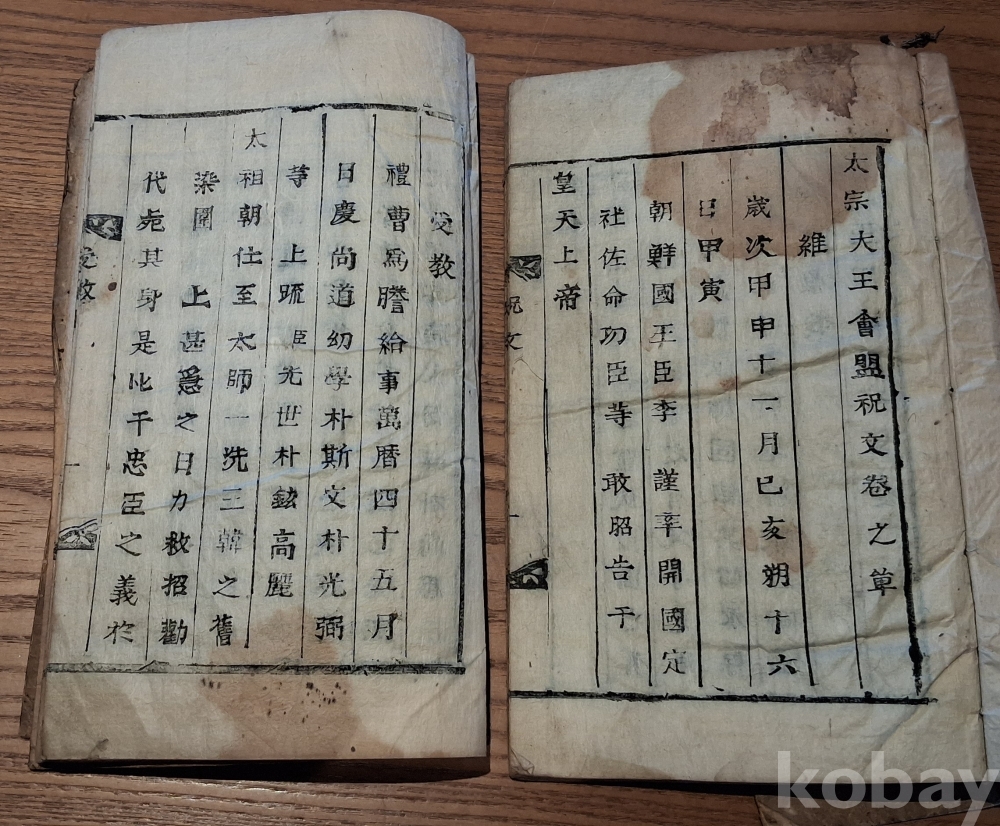 太宗大王會盟祝文卷之
維
歲次甲申十一月己亥朔十六
日甲寅
朝鮮國王臣李 謹率開國定
社佐命功臣等 敢昭告于
皇天上帝
祝文
受教
禮曹爲謄給事萬曆四十五月
日慶尚道幼學朴斯文朴光弼
等 上疏臣先世朴鉉高麗
太祖朝仕至太師一洗三韓之舊
染圍 上甚之日力救招勸
代死其身是比干忠臣之義於
受教
kobay